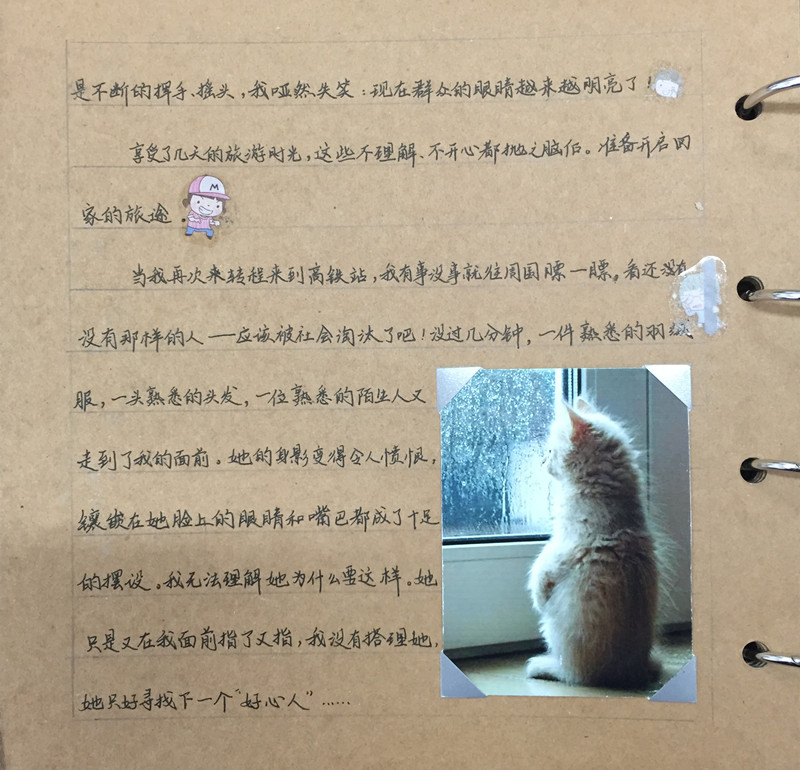 是不断的挥手、摇头，我哑然失笑：现在群众的眼睛越来越明亮了！
享受了几天的旅游时光，这些不理解、不开心都抛之脑后。准备开启回
家的旅途．
M
当我再次来转程来到高铁站，我有事没事就往周围瞟一瞟。看还没有
没有那样的人——应该被社会淘汰了吧！没过几分钟，一件熟悉的羽绒
服，一头熟悉的头发，一位熟悉的陌生人又
走到了我的面前。她的身影变得令人愤恨，
镶嵌在她脸上的眼睛和嘴巴都成了十足
的摆设。我无法理解她为什么要这样。她
只是又在我面前指了又指，我没有搭理她，
她只好寻找下一个“好心人”……